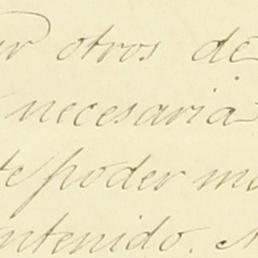 otros de
necesaria
te poder m
ntenido.